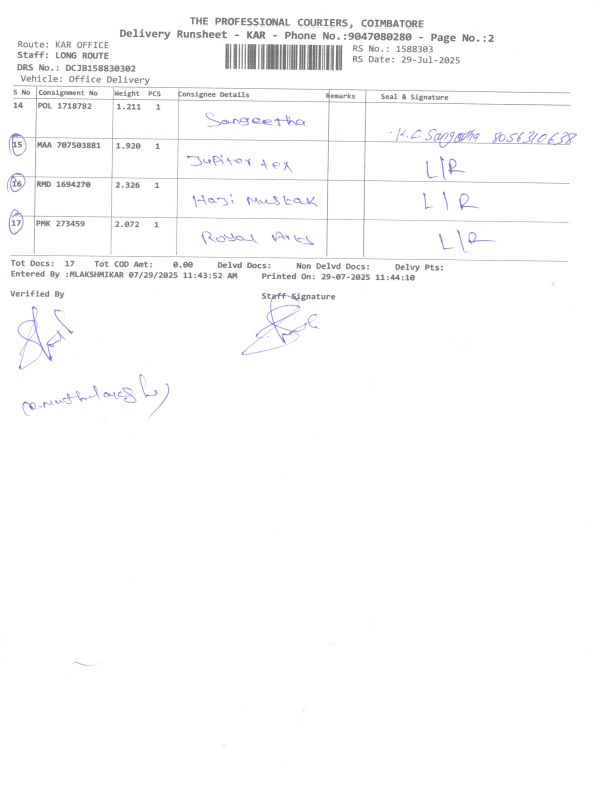 THE PROFESSIONAL COURIERS, COIMBATORE
Delivery Runsheet - KAR - Phone No.:9047080280 - Page No.:2
Route: KAR OFFICE
RS No.: 1588303
Staff: LONG ROUTE
RS Date: 29-Jul-2025
DRS No.: DCJB158830302
Vehicle: Office Delivery
S No Consignment No Weight PCS Consignee Details Remarks Seal & Signature
14 POL 1718782 1.211 1 Sangeetha K.C. Sangeetha 8056310638
15 MAA 707503881 1.920 1 Jupiter tex L/R
16 RMD 1694270 2.326 1 Haji Mustak L/R
17 PMK 273459 2.072 1 Royal Arts L/R
Tot Docs: 17 Tot COD Amt: 0.00 Delvd Docs: Non Delvd Docs: Delvy Pts:
Entered By :MLAKSHMIKAR 07/29/2025 11:43:52 AM Printed On: 29-07-2025 11:44:10
Verified By Staff Signature